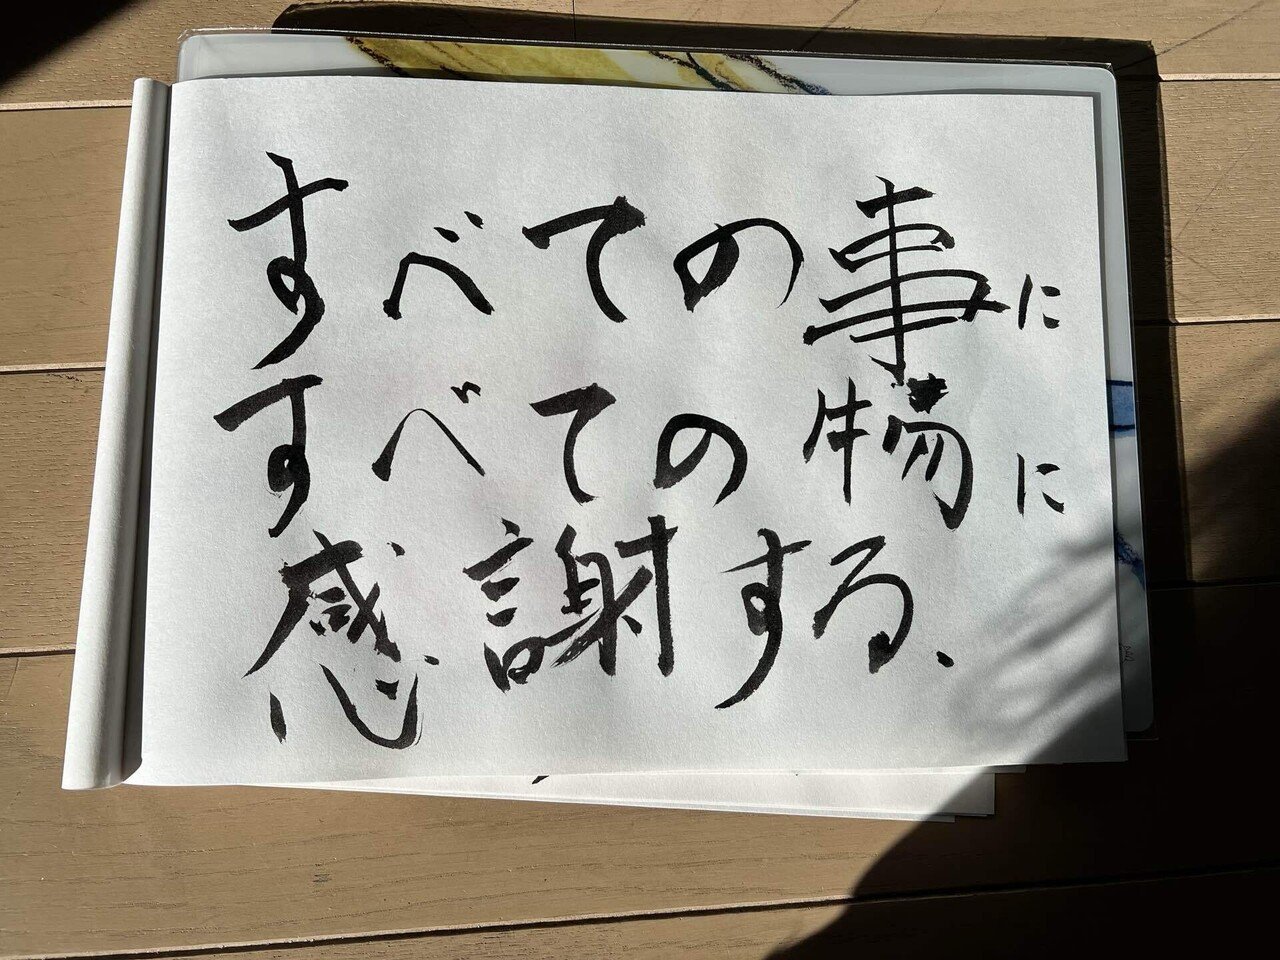 すべての事に
すべての物に
感謝する、